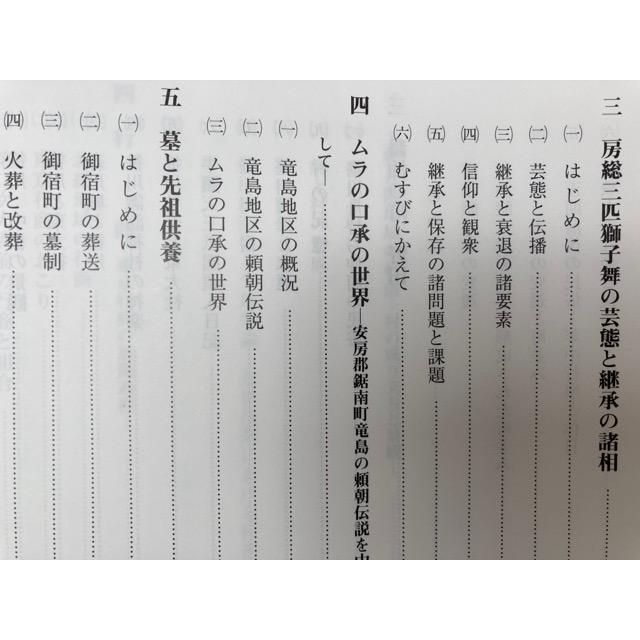 三　房総三匹獅子舞の芸態と継承の諸相…………
㈠　はじめに…………
㈡　芸態と伝播…………
㈢　継承と衰退の諸要素…………
㈣　信仰と観衆…………
㈤　継承と保存の諸問題と課題…………
㈥　むすびにかえて…………
四　ムラの口承の世界―安房郡鋸南町竜島の頼朝伝説を
して―…………
㈠　竜島地区の概況…………
㈡　竜島地区の頼朝伝説…………
㈢　ムラの口承の世界…………
五　墓と先祖供養…………
㈠　はじめに…………
㈡　御宿町の葬送…………
㈢　御宿町の墓制…………
㈣　火葬と改葬…………